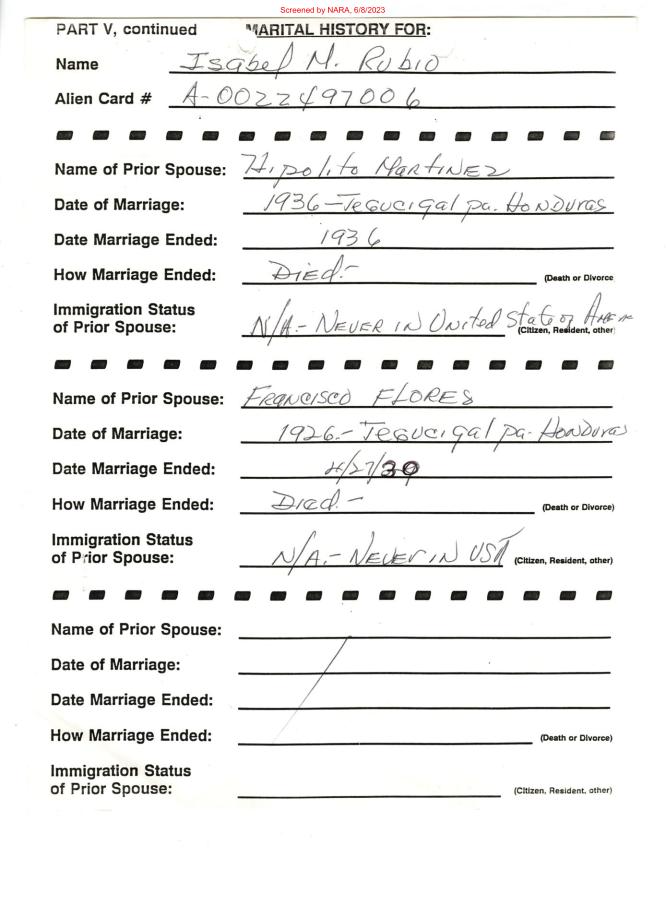 Screened by NARA, 6/8/2023
PART V, continued MARITAL HISTORY FOR:
Name Isabel M. Rubio
Alien Card # A-0022497006
Name of Prior Spouse: Hipolito Martinez
Date of Marriage: 1936-Tegucigalpa. Honduras
Date Marriage Ended: 1936
How Marriage Ended: Died.- (Death or Divorce
Immigration Status
of Prior Spouse: N/A.- Never in United State of
(Citizen, Resident, other)
Name of Prior Spouse: Francisco Flores
Date of Marriage: 1926.- Tegucigalpa- Honduras
Date Marriage Ended: 4/27/30
How Marriage Ended: Died.- (Death or Divorce)
Immigration Status
of Prior Spouse: N/A.- Never in USA (Citizen, Resident, other)
Name of Prior Spouse:
Date of Marriage:
Date Marriage Ended:
How Marriage Ended: (Death or Divorce)
Immigration Status
of Prior Spouse: (Citizen, Resident, other)